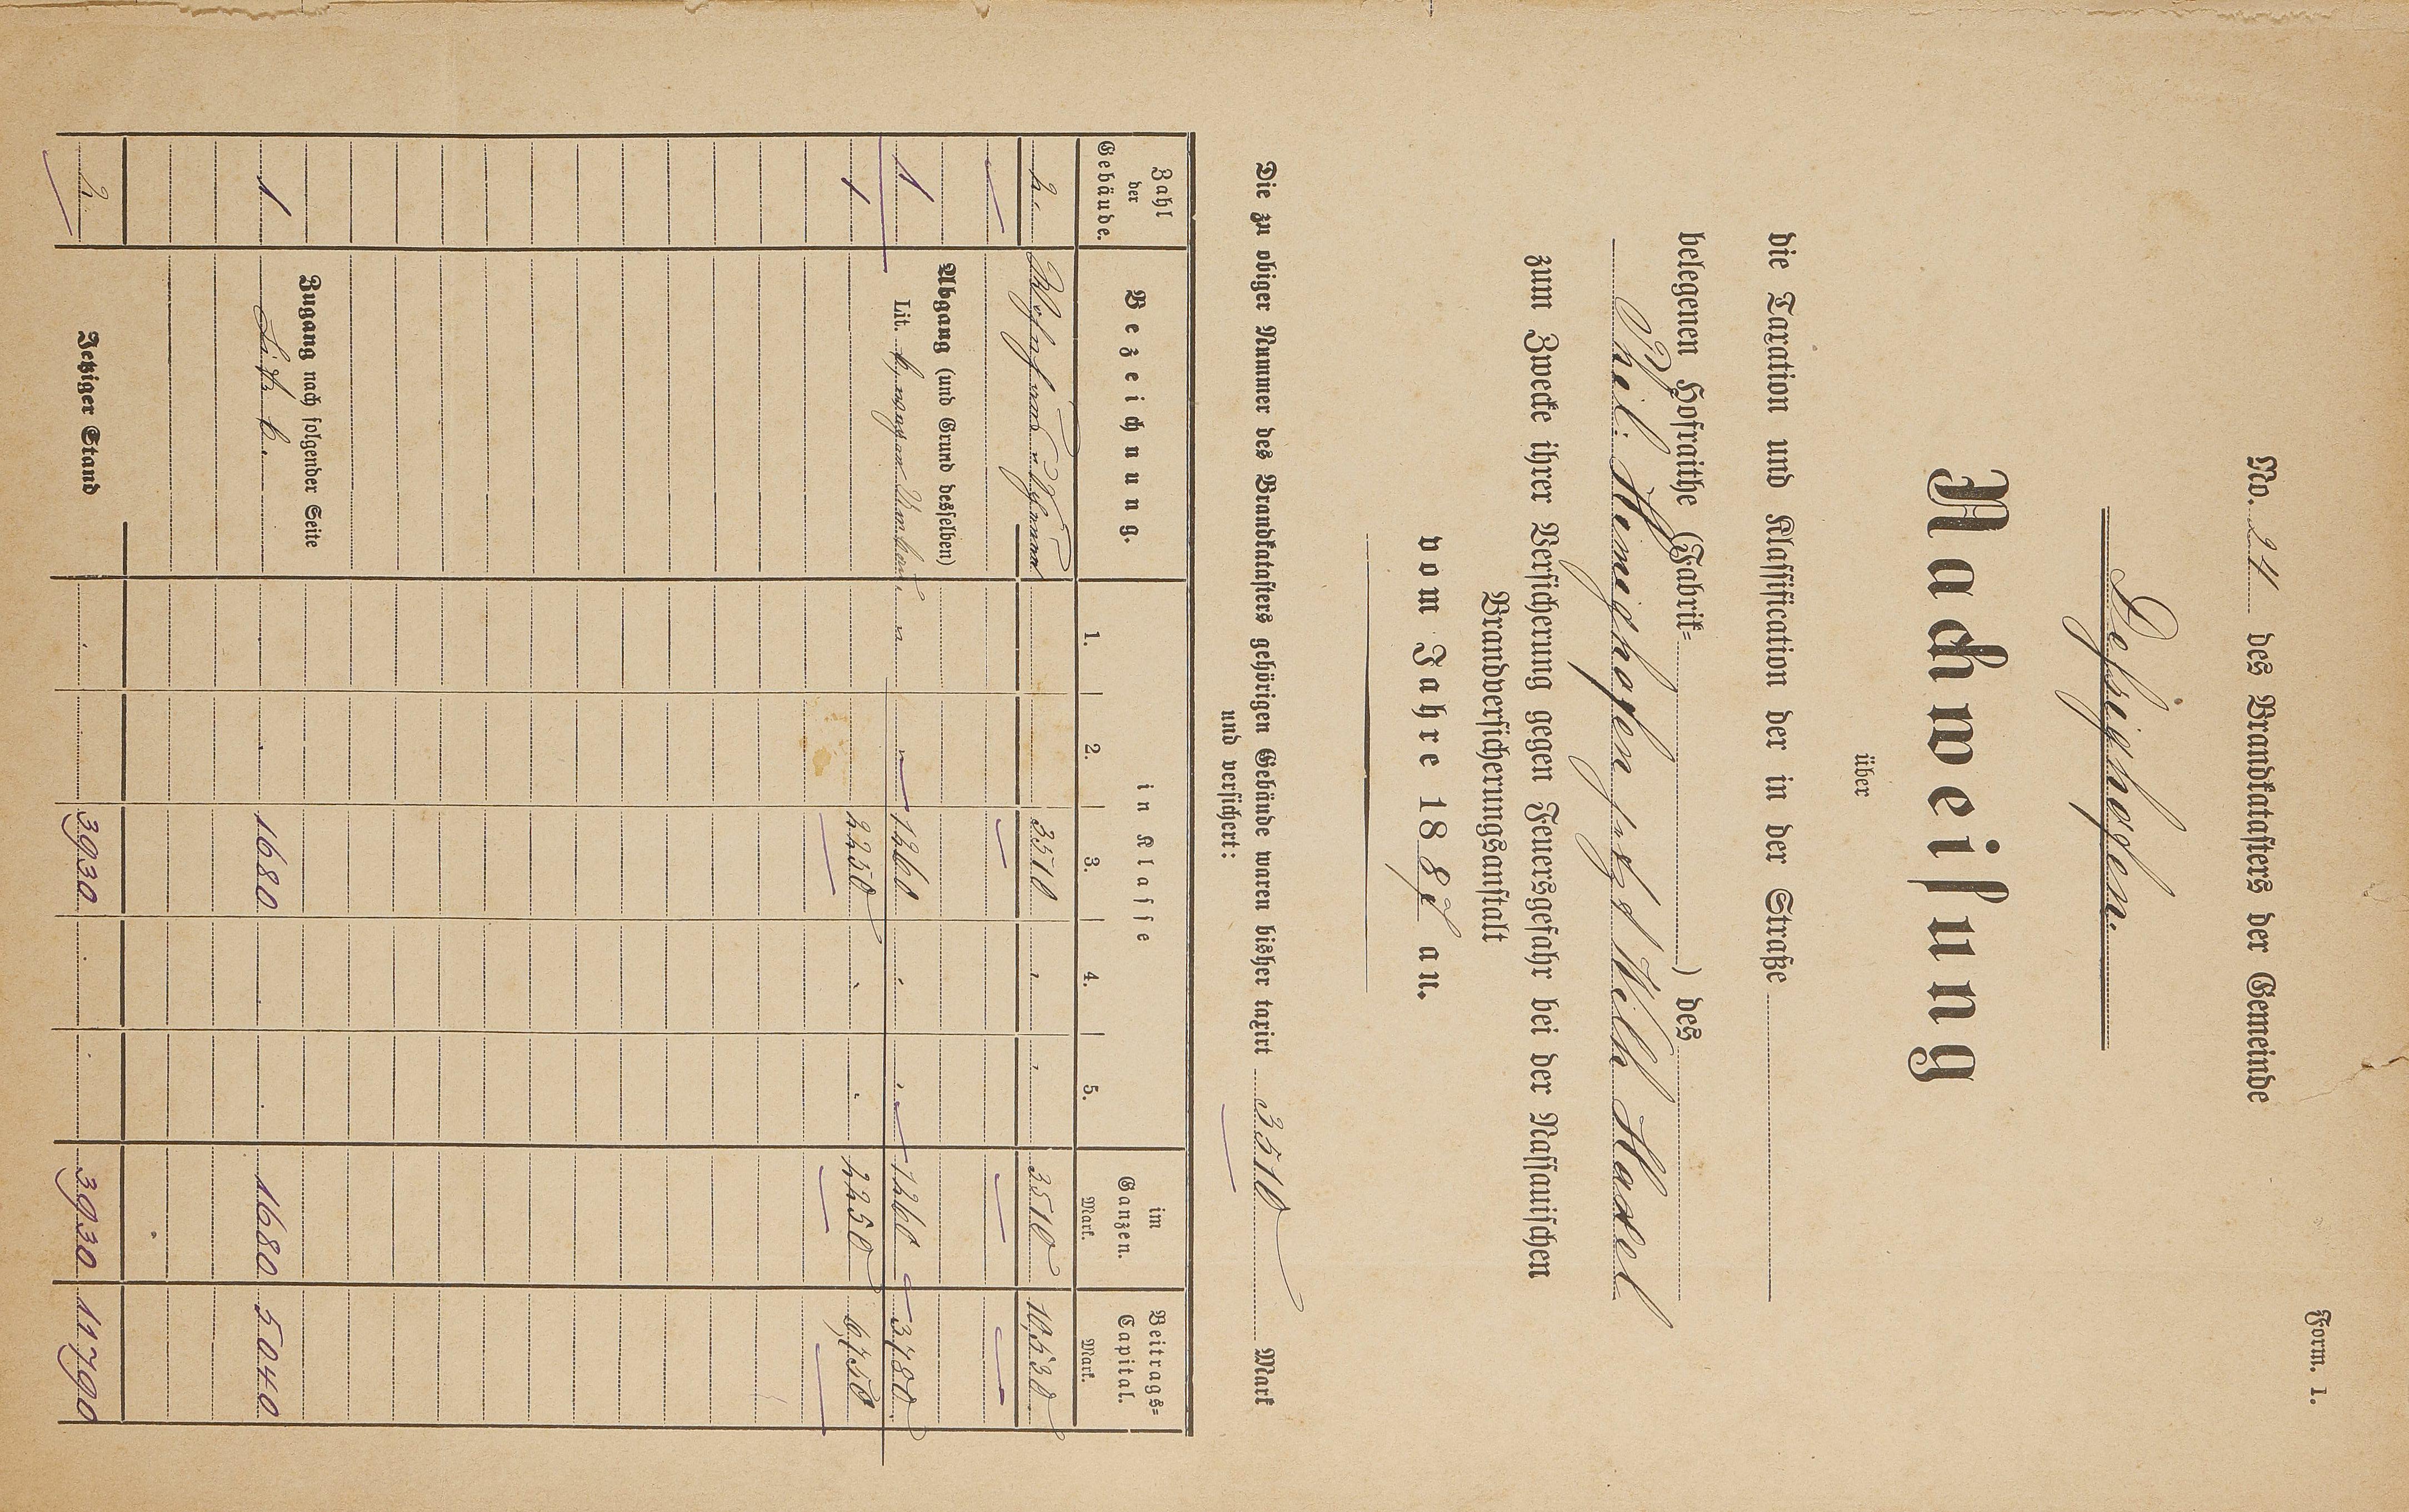 Form. 1.
No. 24 des Brandkatasters der Gemeinde
Dessighofen.
Nachweisung
über
die Taxation und Klassification der in der Straße
belegenen Hofraithe (Fabrik= ) des
Phil: Hemighofen jetzt Wilh Hadel
zum Zwecke ihrer Versicherung gegen Feuersgefahr bei der Nassauischen
Brandversicherungsanstalt
vom Jahre 188 an.
Die zu obiger Nummer des Brandkatasters gehörigen Gebäude waren bisher taxirt 3510 Mark
und versichert:
Zahl der Gebäude. Bezeichnung. in Klasse im Ganzen. Beitrags= Capital.
1. 2. 3. 4. 5. Mark. Mark.
2. 3510 3510 10,530
Abgang (und Grund desselben)
1 Lit. b, wegen 1260 1260 3,780
1 2250 2250 6,750
Zugang nach folgender Seite
1 Litr b. 1680 1680 5040
2. Jetziger Stand 3930 3930 11790